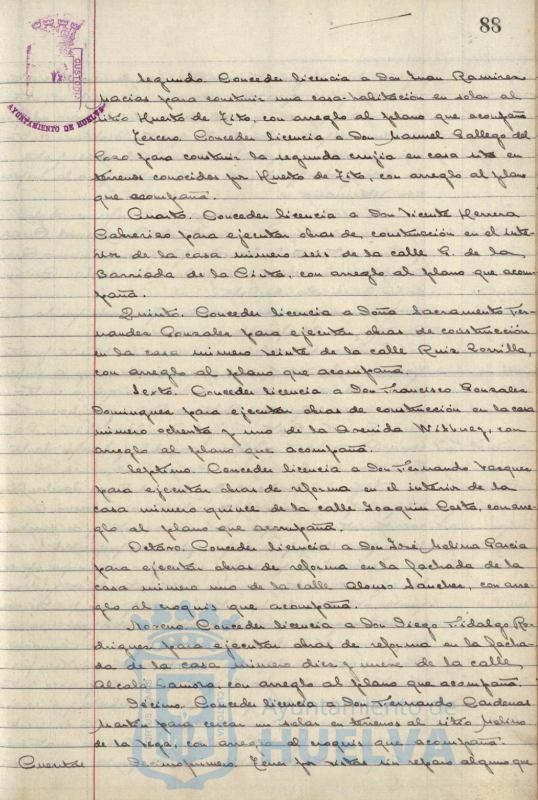 88
CUSTODIA
AYUNTAMIENTO DE HUELVA
Segundo. Conceder licencia a Don Juan Ramirez
Macias para construir una casa-habitación en solar al
sitio Huerto de Zito, con arreglo al plano que acompaña
Tercero. Conceder licencia a Don Manuel Gallego del
Pozo para construir la segunda crujia en casa sita en
terrenos conocidos por Huerto de Zito, con arreglo al plano
que acompaña.
Cuarto. Conceder licencia a Don Vicente Herrera
Cabrerizo para ejecutar obras de construcción en el inte-
rior de la casa número seis de la calle G. de la
Barriada de la Cinta, con arreglo al plano que acom-
paña.
Quinto. Conceder licencia a Doña Sacramento Fer-
nandez Gonzalez para ejecutar obras de construcción
en la casa número veinte de la calle Ruiz Zorrilla,
con arreglo al plano que acompaña.
Sexto. Conceder licencia a Don Francisco Gonzalez
Dominguez para ejecutar obras de construcción en la casa
número ochenta y uno de la Avenida Wilkney, con
arreglo al plano que acompaña.
Séptimo. Conceder licencia a Don Fernando Vazquez
para ejecutar obras de reforma en el interior de la
casa número quince de la calle Joaquin Costa, con arre-
glo al plano que acompaña.
Octavo. Conceder licencia a Don José Molina Garcia
para ejecutar obras de reforma en la fachada de la
casa número uno de la calle Alonso Sanchez, con arre-
glo al croquis que acompaña.
Noveno. Conceder licencia a Don Diego Fidalgo Ro-
driguez para ejecutar obras de reforma en la facha-
da de la casa número diez y nueve de la calle
Alcalá Zamora, con arreglo al plano que acompaña.
Décimo. Conceder licencia a Don Fernando Cardenas
Martin para cercar un solar en terrenos al sitio Molino
de la Vega, con arreglo al croquis que acompaña.
Cuentas Decimoprimero. Tener por vistas sin reparo alguno que
Ayuntamiento de
HUELVA